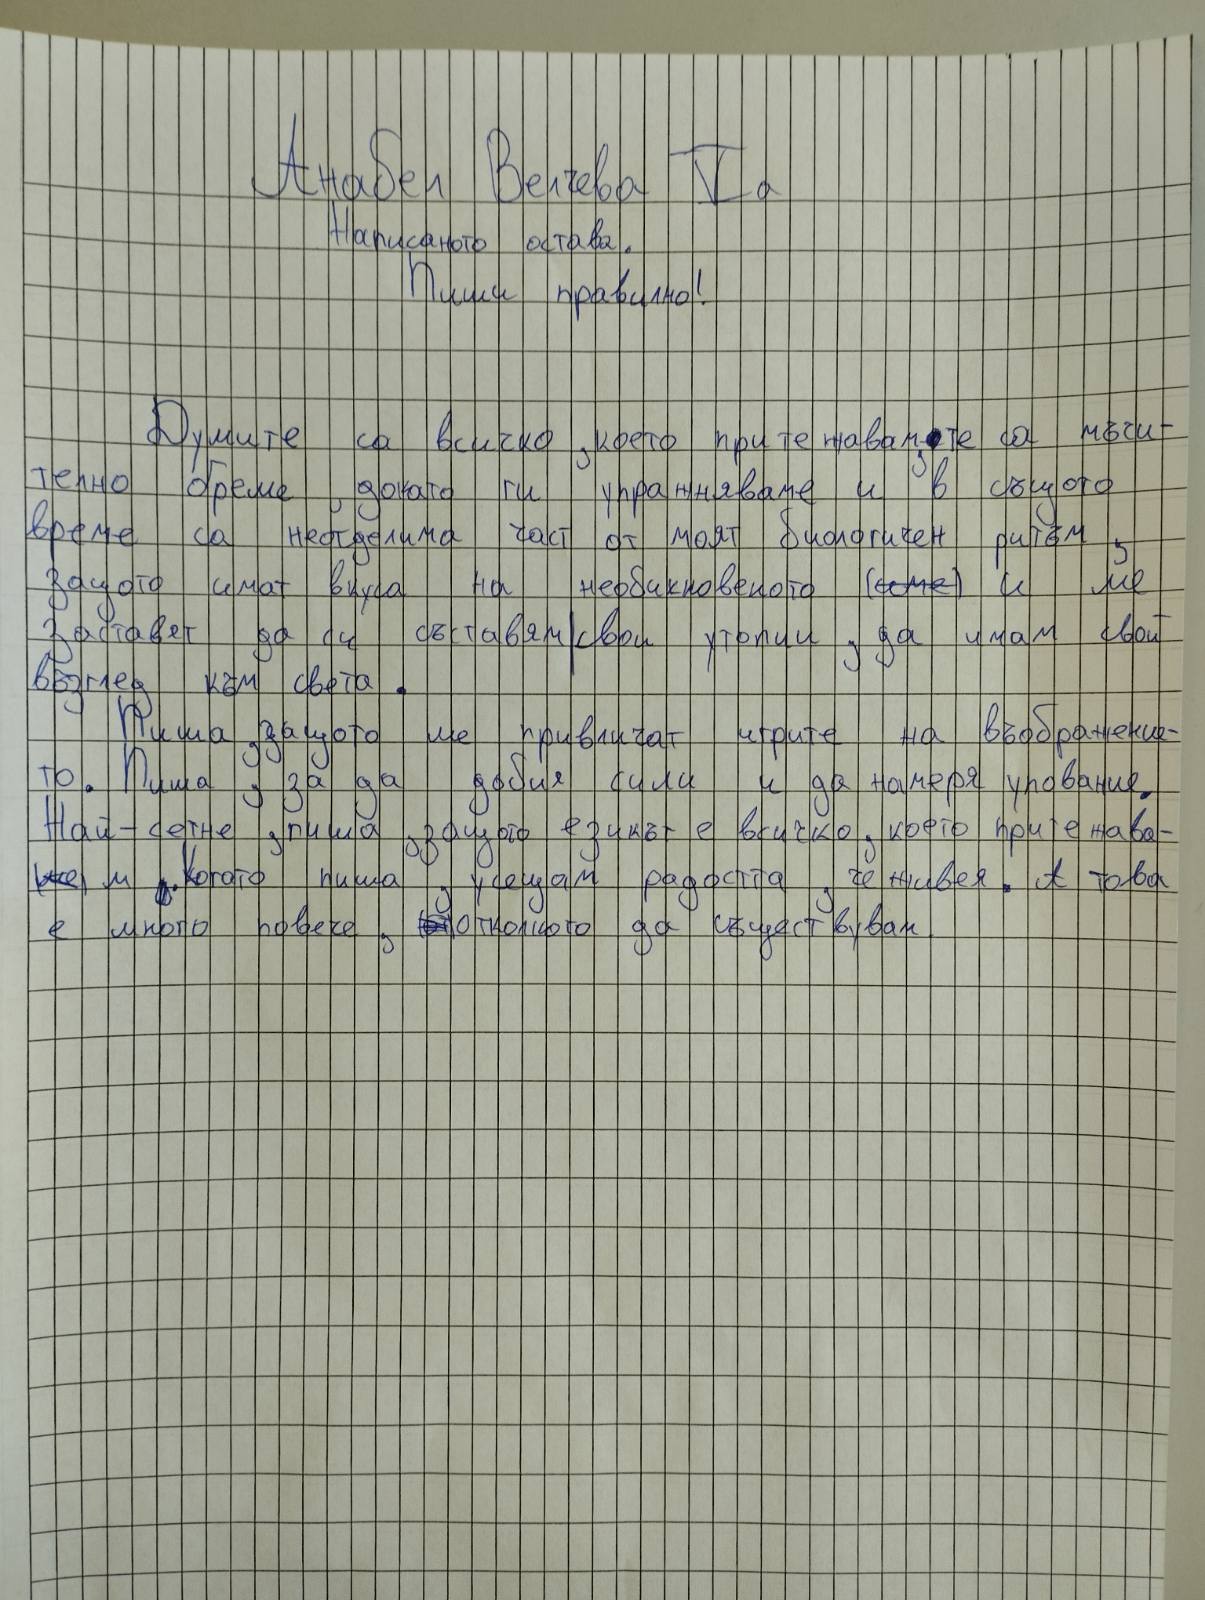 Анабел Велчева Vа
Написаното остава.
Пиши правилно!
Думите са всичко, което притежавам, те са мъчи-
телно бреме, докато ги упражняваме и в същото
време са неотделима част от моят биологичен ритъм,
защото имат вкуса на необикновеното и ме
заставят да си съставям свои утопии, да имам свой
възглед към света.
Пиша, защото ме привличат игрите на въображение-
то. Пиша, за да добия сили и да намеря упование.
Най-сетне, пиша, защото езикът е всичко, което притежава-
м. Когато пиша, усещам радостта, че живея. А това
е много повече, отколкото да съществувам